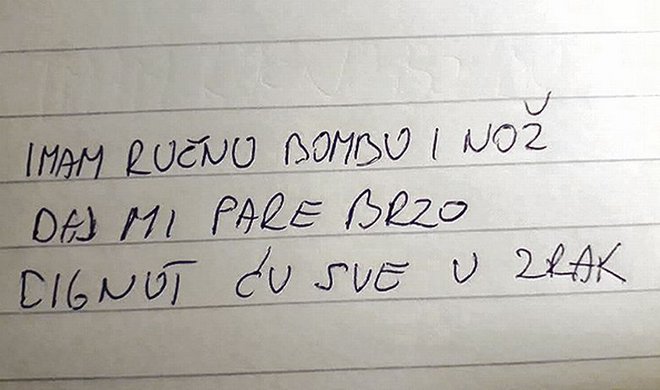 IMAM RUČNU BOMBU I NOŽ
DAJ MI PARE BRZO
DIGNUT ĆU SVE U ZRAK